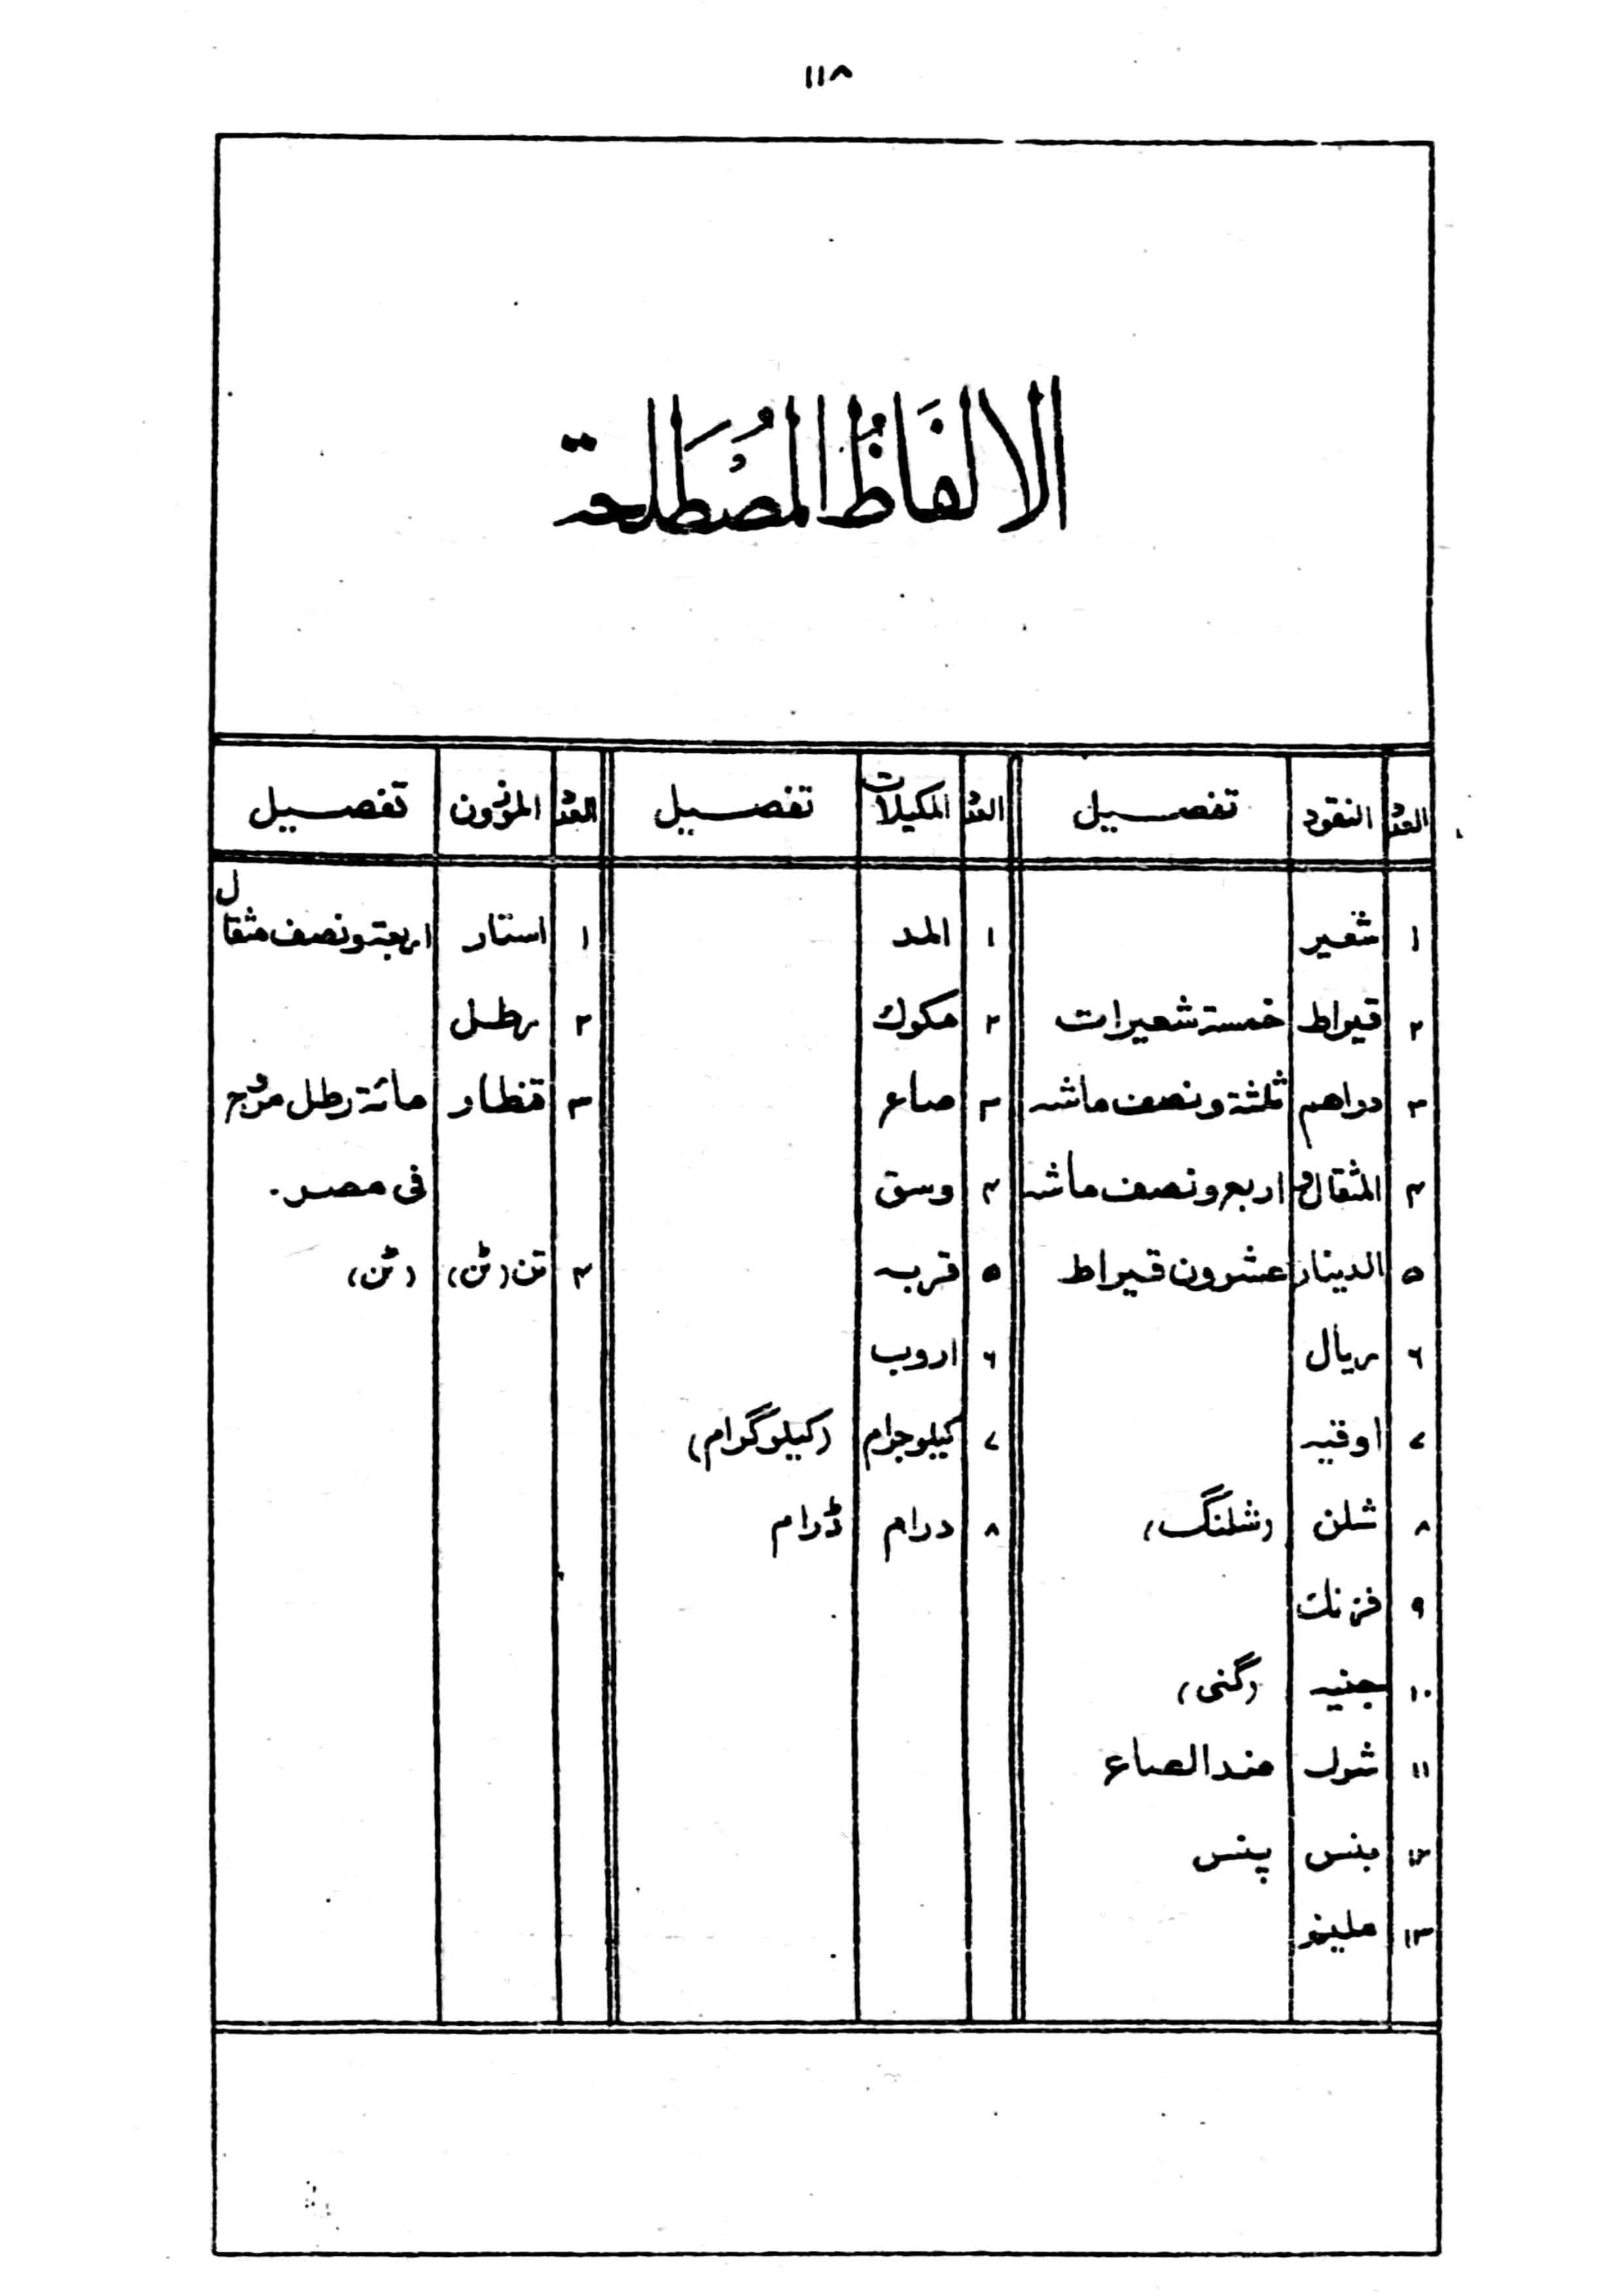 ١١٨
الالفَاظُ المُصْطَلحة
العدد النقود تفصيل العدد المكيلات تفصيل العدد الموزون تفصيل
١ شعير ١ المد ١ استار اربعة ونصف مثقال
٢ قيراط خمسة شعيرات ٢ مكوك ٢ رطل
٣ دراهم ثلثة ونصف ماشه ٣ صاع ٣ قنطار مائة رطل مروج
٤ المثقال اربع ونصف ماشه ٤ وسق فى مصر.
٥ الدينار عشرون قيراط ٥ قربه ٤ تن (ٹن) (ٹن)
٦ ريال ٦ اروب
٧ اوقيه ٧ كيلوجرام (کیلوگرام)
٨ شلن (شلنگ) ٨ درام ڈرام
٩ فرنك
١٠ جنيه (گنی)
١١ شوك الصاع
١٢ بنس پنس
١٣